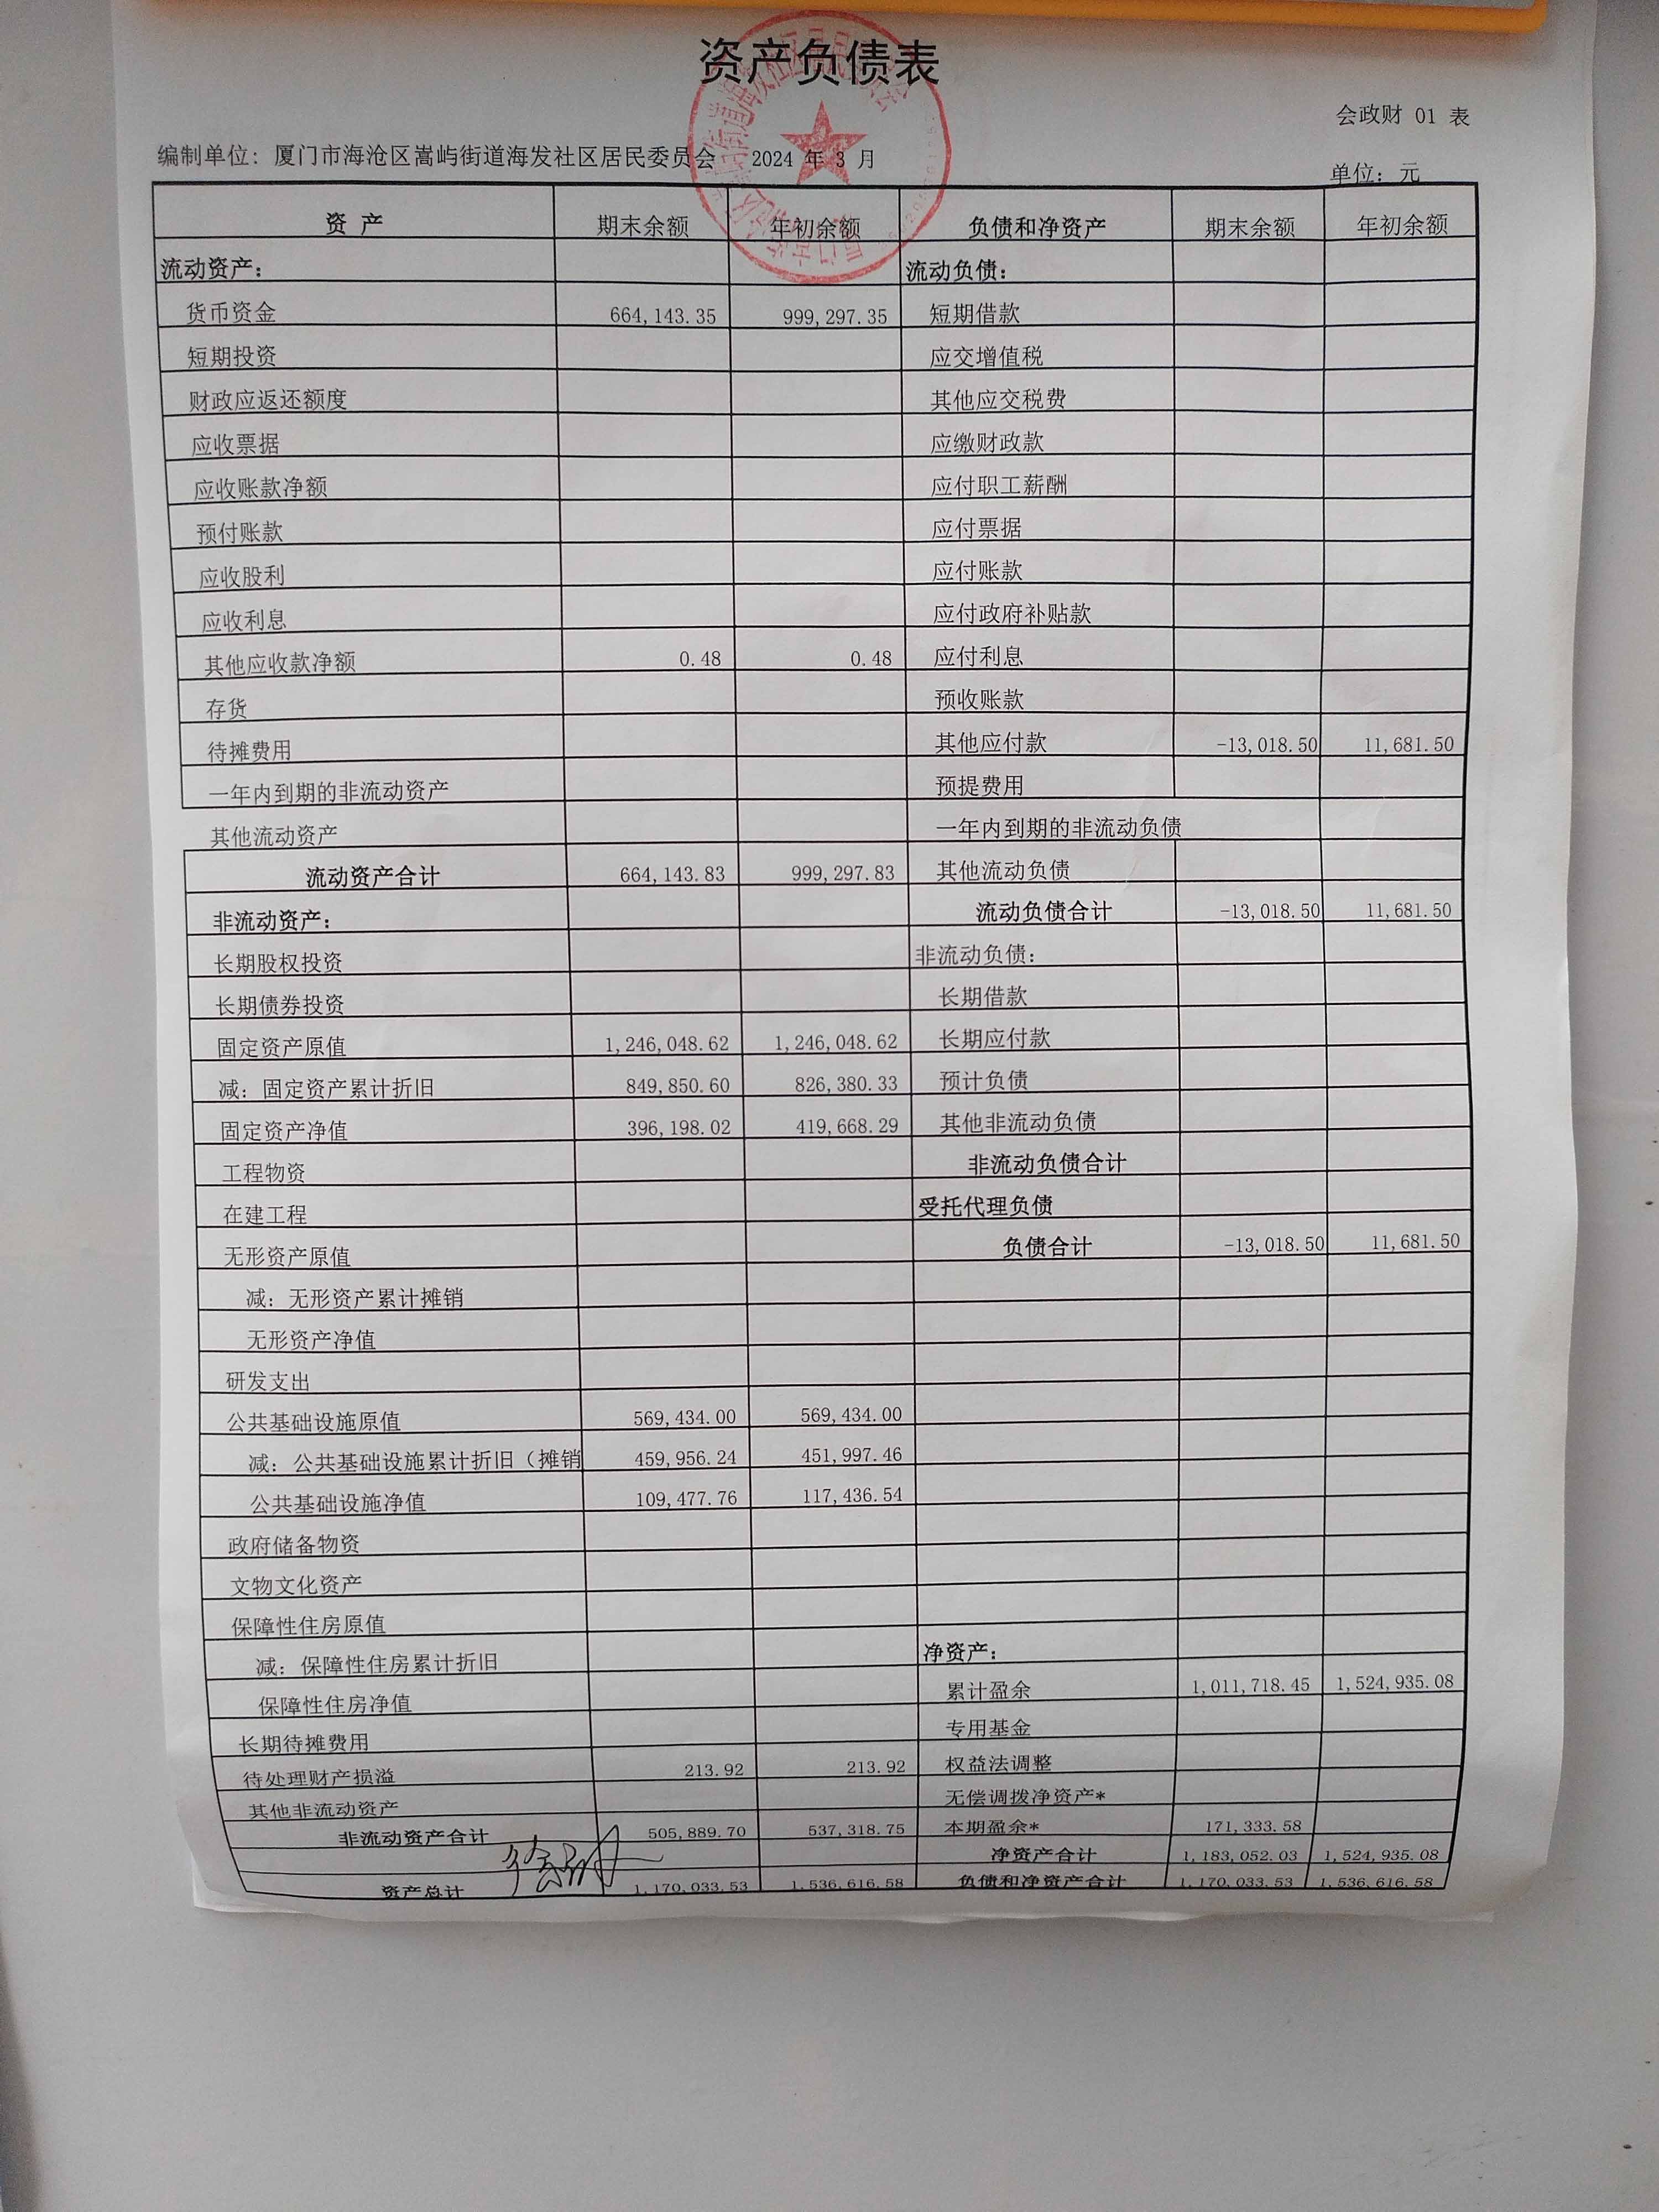 资产负债表
会政财 01 表
编制单位：厦门市海沧区嵩屿街道海发社区居民委员会 2024 年 3 月
单位：元
资 产 期末余额 年初余额 负债和净资产 期末余额 年初余额
流动资产： 流动负债：
货币资金 664,143.35 999,297.35 短期借款
短期投资 应交增值税
财政应返还额度 其他应交税费
应收票据 应缴财政款
应收账款净额 应付职工薪酬
预付账款 应付票据
应收股利 应付账款
应收利息 应付政府补贴款
其他应收款净额 0.48 0.48 应付利息
存货 预收账款
待摊费用 其他应付款 -13,018.50 11,681.50
一年内到期的非流动资产 预提费用
其他流动资产 一年内到期的非流动负债
流动资产合计 664,143.83 999,297.83 其他流动负债
非流动资产： 流动负债合计 -13,018.50 11,681.50
长期股权投资 非流动负债：
长期债券投资 长期借款
固定资产原值 1,246,048.62 1,246,048.62 长期应付款
减：固定资产累计折旧 849,850.60 826,380.33 预计负债
固定资产净值 396,198.02 419,668.29 其他非流动负债
工程物资 非流动负债合计
在建工程 受托代理负债
无形资产原值 负债合计 -13,018.50 11,681.50
减：无形资产累计摊销
无形资产净值
研发支出
公共基础设施原值 569,434.00 569,434.00
减：公共基础设施累计折旧（摊销 459,956.24 451,997.46
公共基础设施净值 109,477.76 117,436.54
政府储备物资
文物文化资产
保障性住房原值
减：保障性住房累计折旧 净资产：
保障性住房净值 累计盈余 1,011,718.45 1,524,935.08
长期待摊费用 专用基金
待处理财产损溢 213.92 213.92 权益法调整
其他非流动资产 无偿调拨净资产*
非流动资产合计 505,889.70 537,318.75 本期盈余* 171,333.58
净资产合计 1,183,052.03 1,524,935.08
资产总计 1,170,033.53 1,536,616.58 负债和净资产合计 1,170,033.53 1,536,616.58